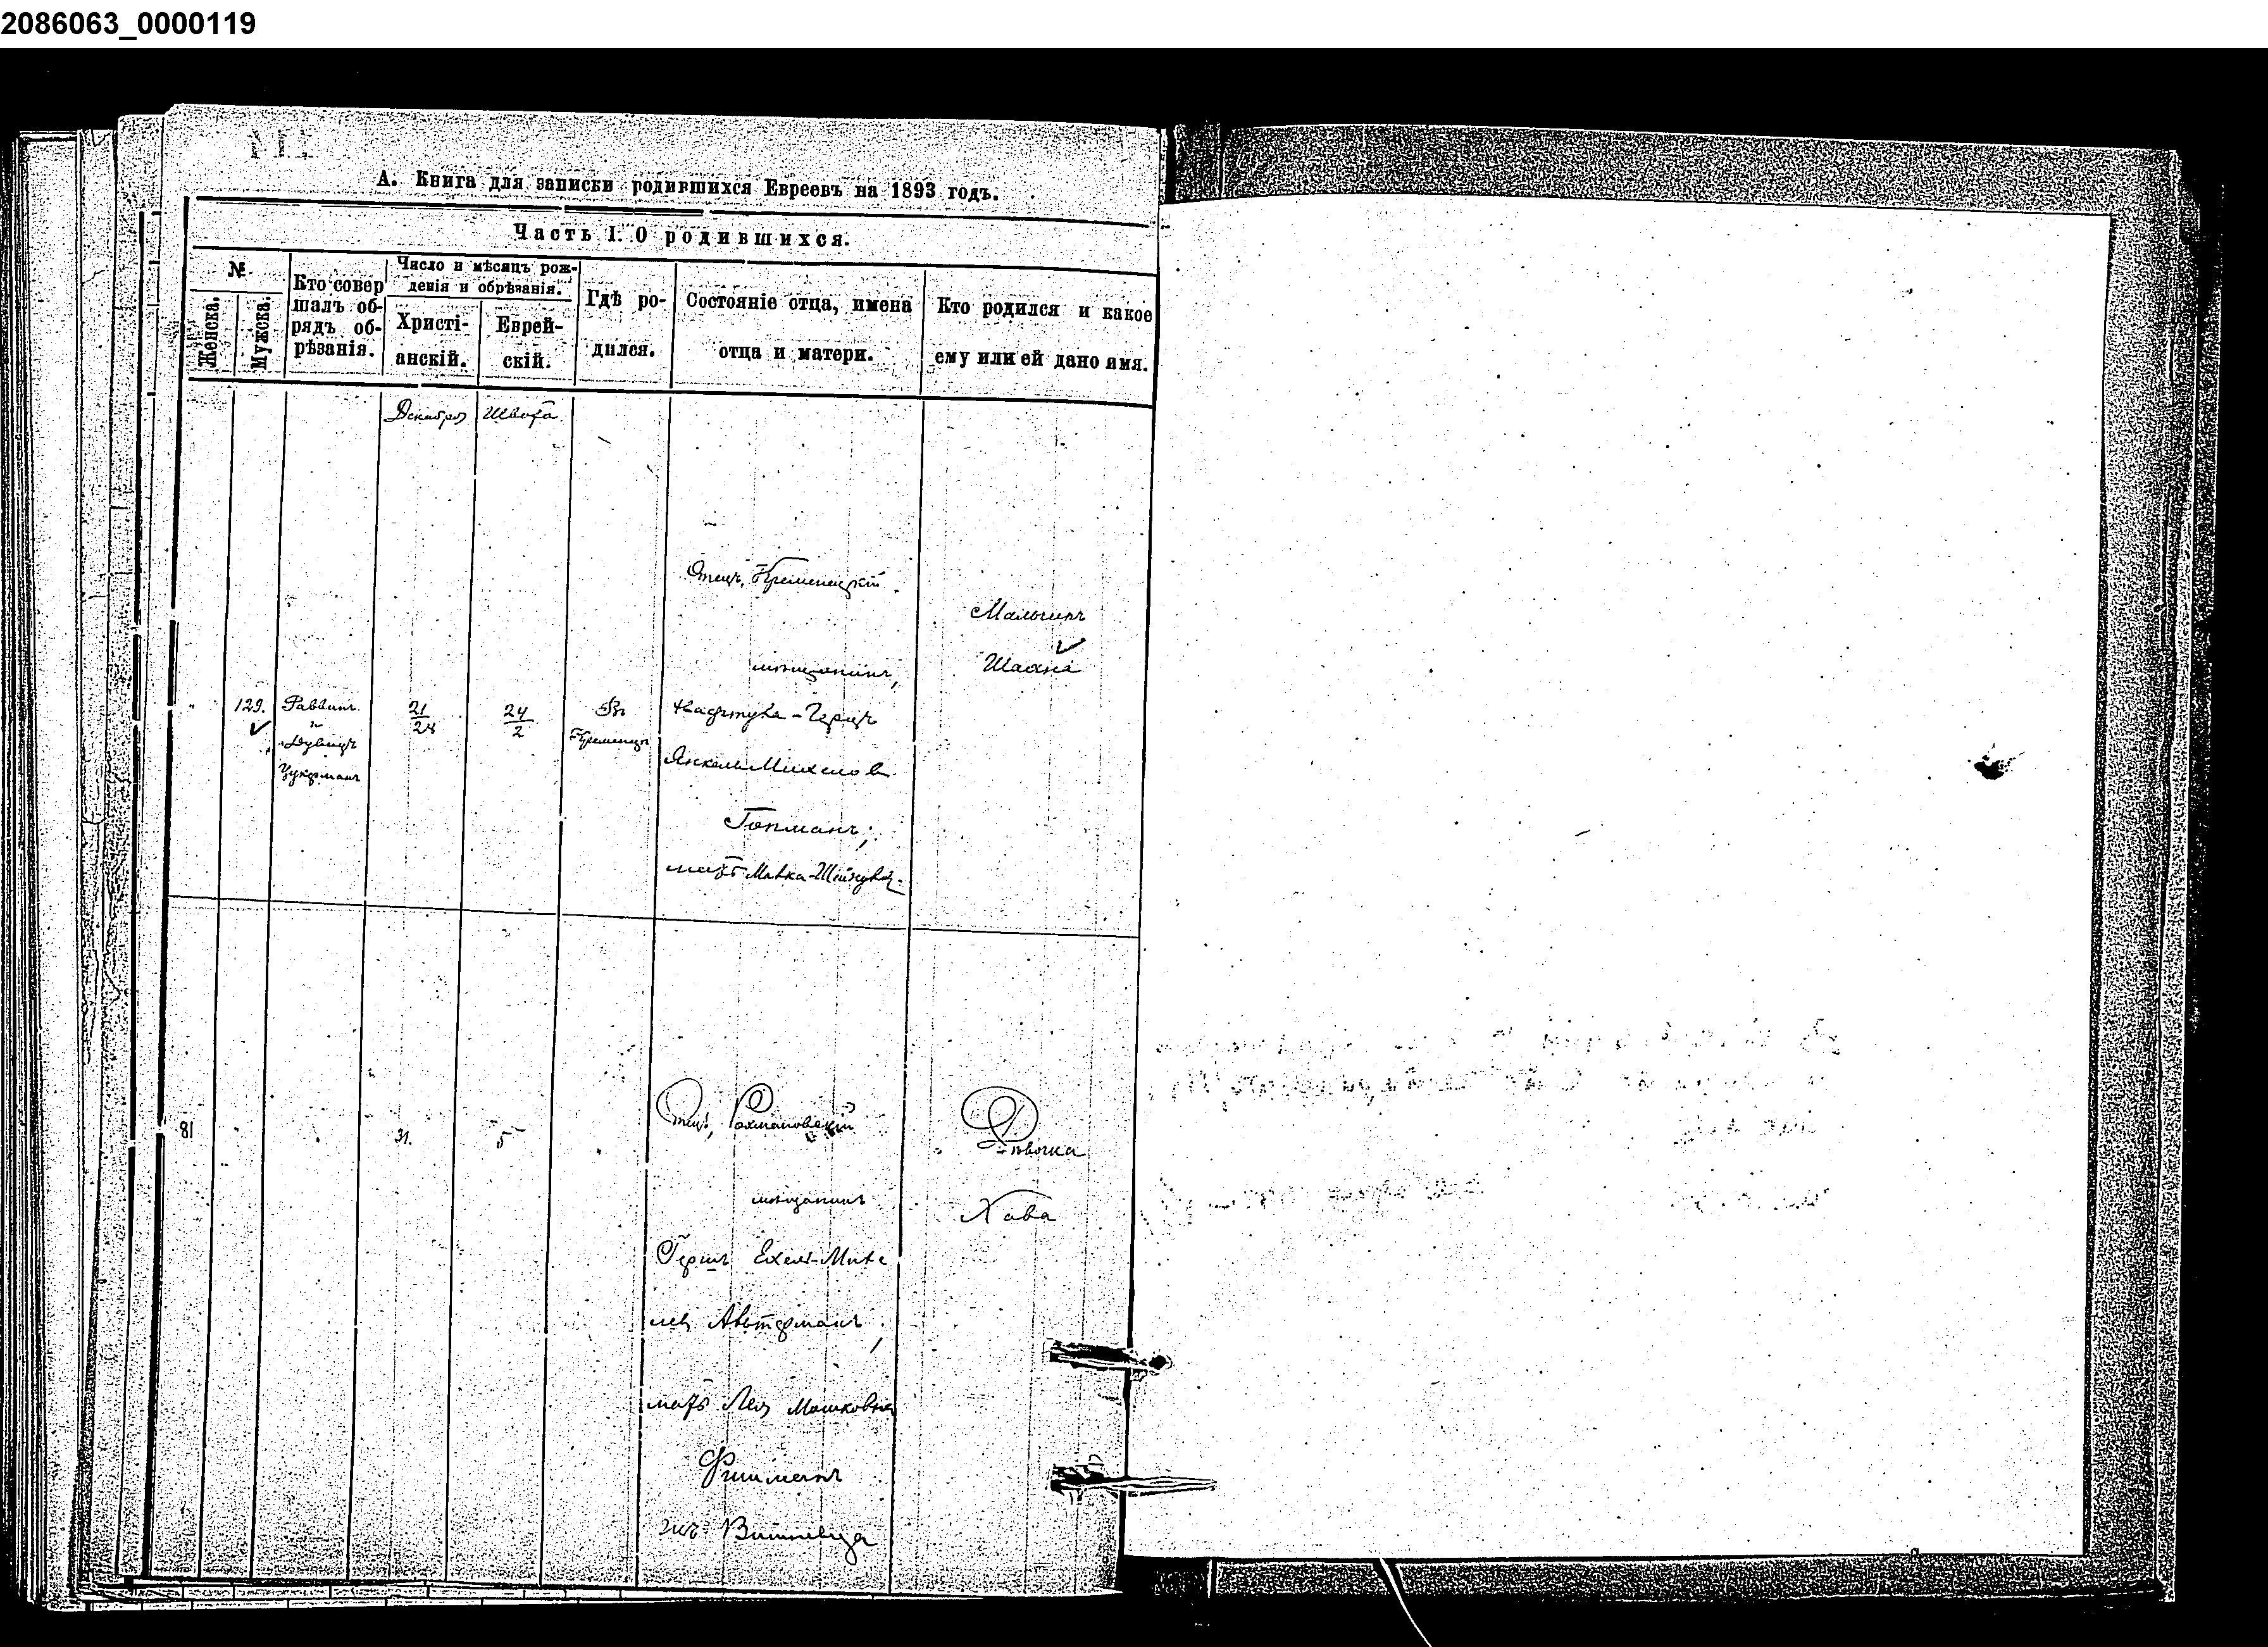 2086063_0000119
А. Книга для записки родившихся Евреевъ на 1893 годъ.
Часть I. О родившихся.
№
Женска.
Мужска.
Кто совер
шалъ об-
рядъ об-
рѣзанія.
Число и мѣсяцъ рож-
денія и обрѣзанія.
Христі-
анскій.
Еврей-
скій.
Гдѣ ро-
дился.
Состояніе отца, имена
отца и матери.
Кто родился и какое
ему или ей дано имя.
Декабря
Швота
129.
Раввинъ
и
Цукерманъ
21
24
24
2
Въ
Кременцѣ
Отецъ, Кременецкій
мѣщанинъ,
Герцъ
Янкель
Гопманъ;
мать Малка
Мальчикъ
81
31.
5
Отецъ, Рохмановскій
мѣщанинъ
Гершъ Ехель
Альтерманъ,
мать Лея Мошковна
Фишманъ
изъ Вишневца
Дѣвочка
Хава